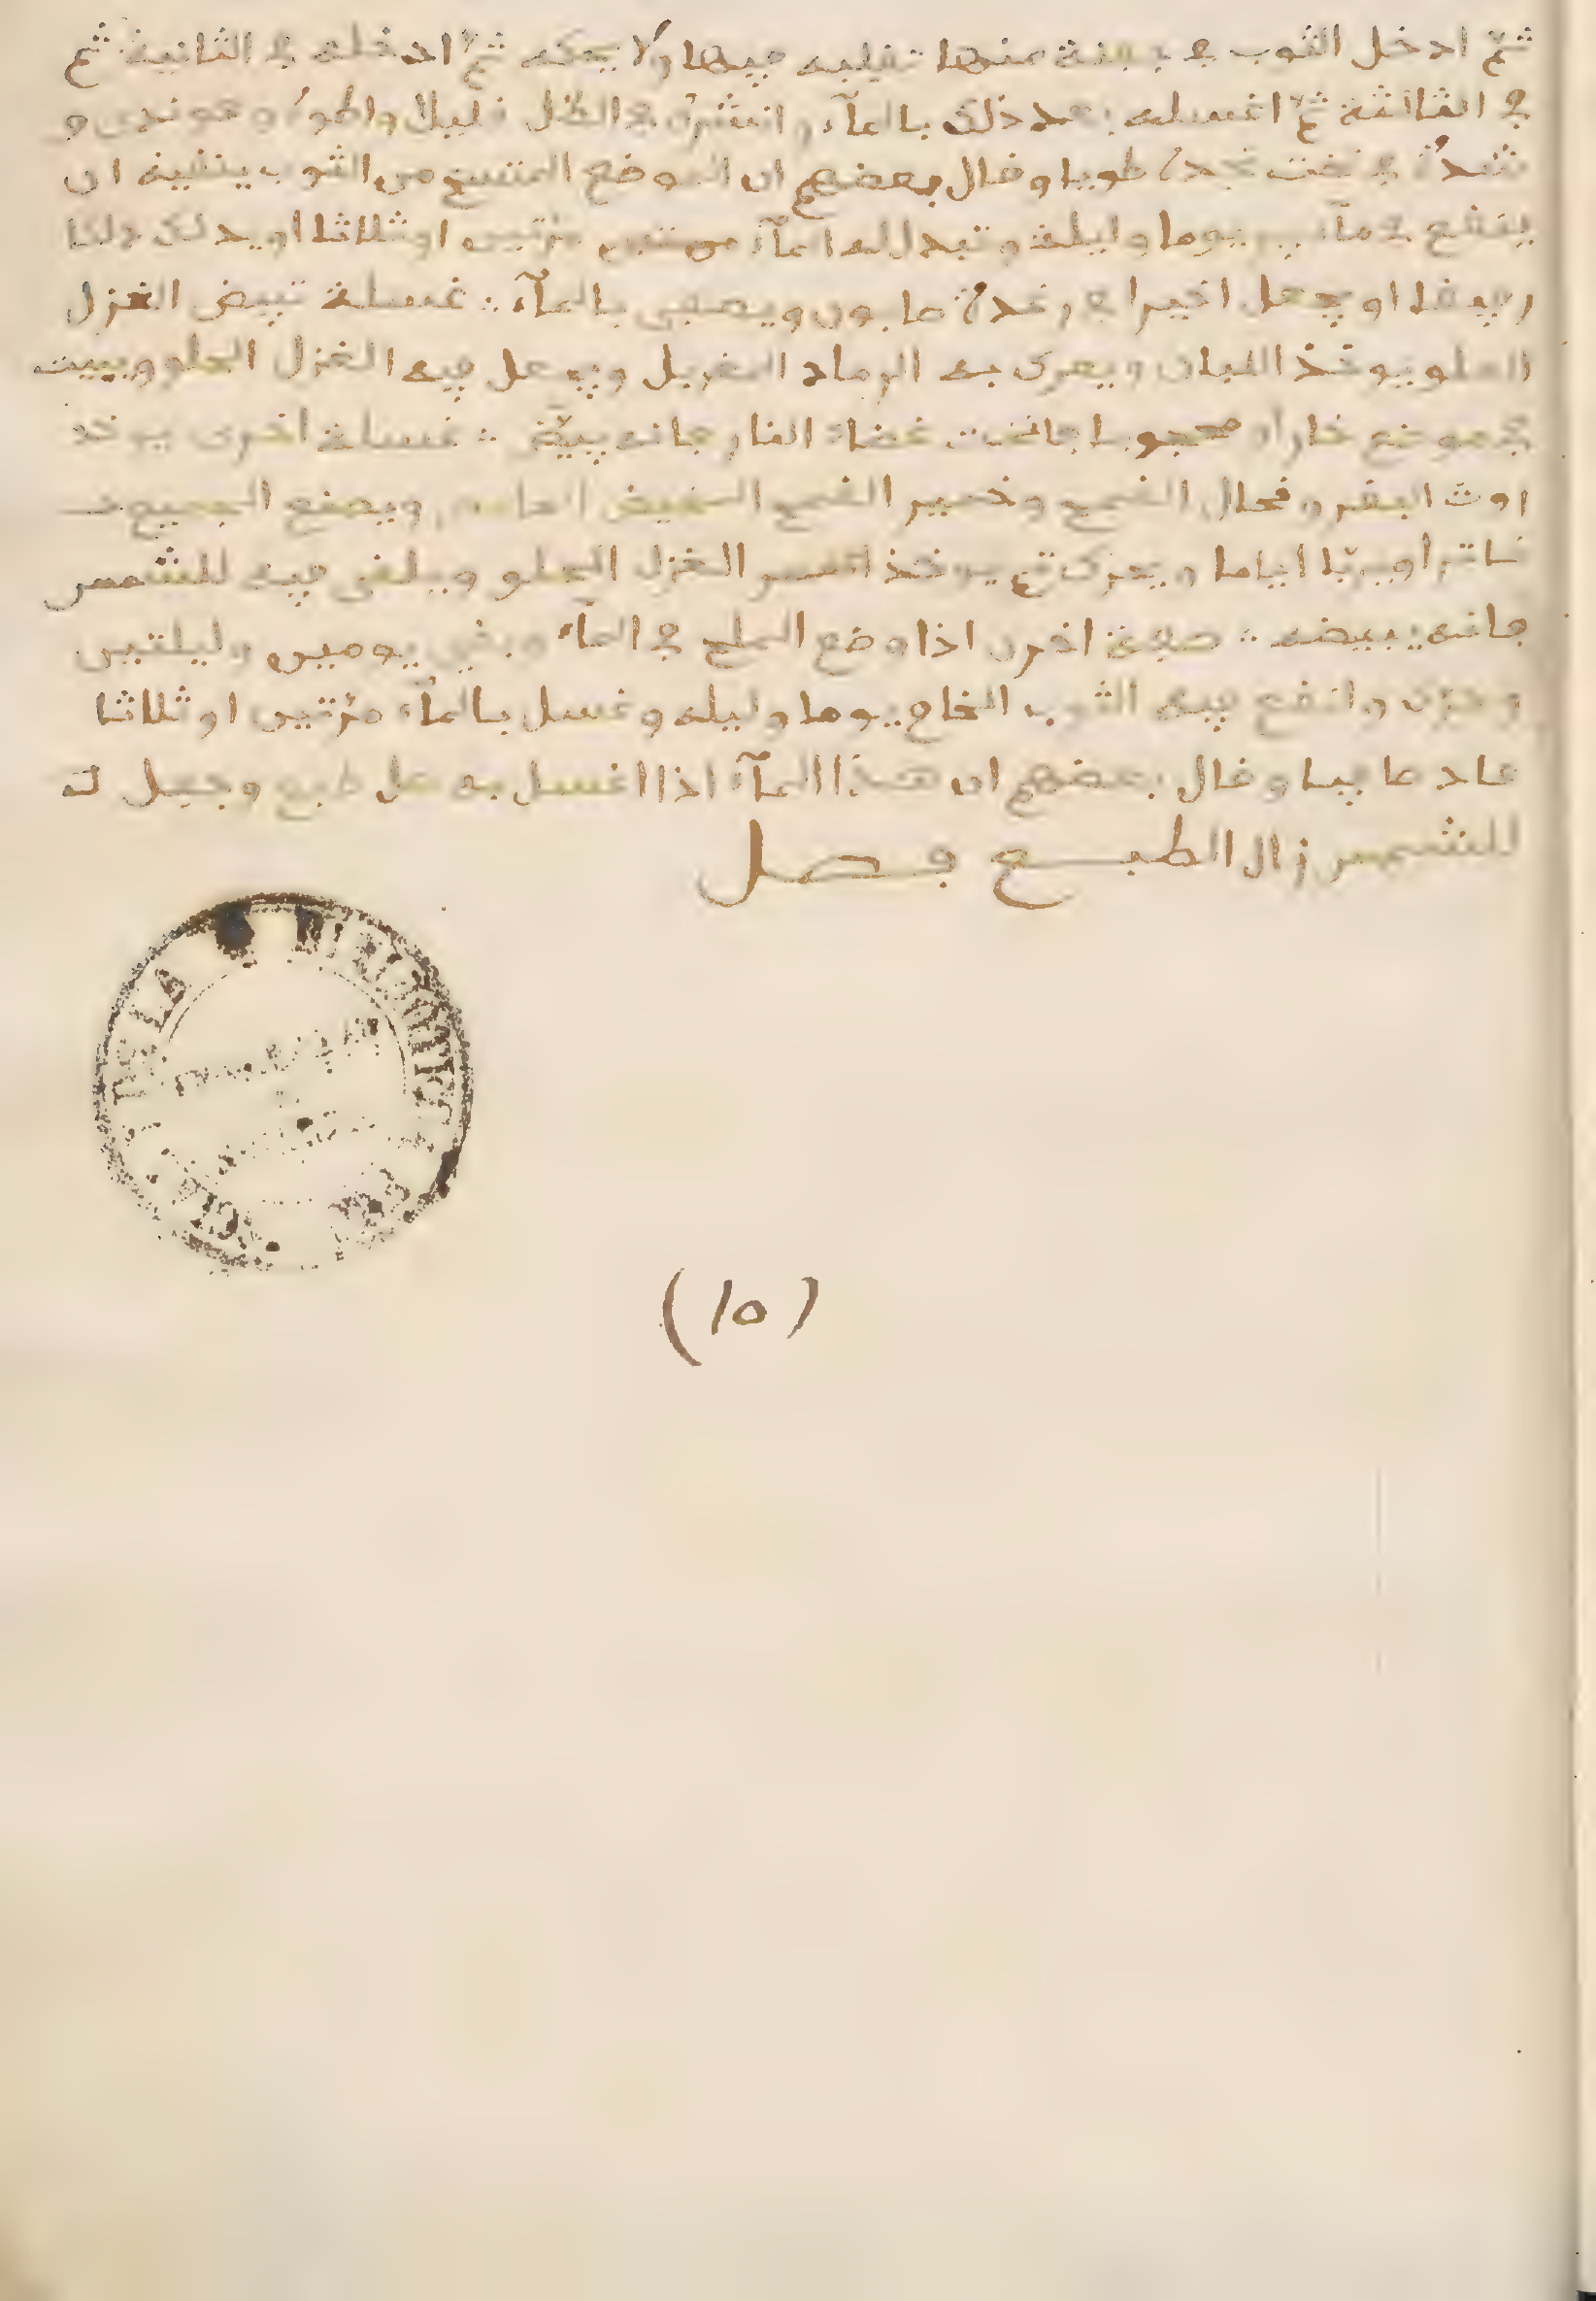 ثمّ ادخل الثوب في جفنة منها تقلبه فيها ولا يحكه ثمّ ادخله في الثانية ثم
في الثالثة ثمّ اغسله بعد ذلك بالمآء وانشره في الظل قليلا واطوه وهو ندي و
شده في تخت تجده طويا وقال بعضهم ان الموضع المتسخ من الثوب ينبغي ان
ينقع في مآء يوما وليلة وتبدل له المآء مرتين او ثلاثا او يدلك دلكا
رفيقا او يجعل اخيرا في رغدة صابون ويصفى بالمآء ∴ غسلة تبيض الغزل
الحلو يوخذ اللبان ويعرك به الرماد المغربل ويجعل فيه الغزل الحلو ويبيت
في موضع محجوبا النار فانه ∴ غسلة اخرى يوخذ
اروث البقر ونخال القمح وخمير القمح الحامض ويصنع الجميع
ايّاما ويحرك ثم يوخذ الغزل الحلو ويلقى فيه للشمس
فانه يبيضه ∴ صفة اخرى اذا وضع الملح في المآء وبقي يومين وليلتين
وحرك وانقع فيه الثوب الخام يوما وليله وغسل بالمآء مرّتين او ثلاثا
عاد صافيا وقال بعضهم ان هذا المآء اذا اغسل به طبع وجعل
للشمس زال الطبع فصل
(١٥)
LA